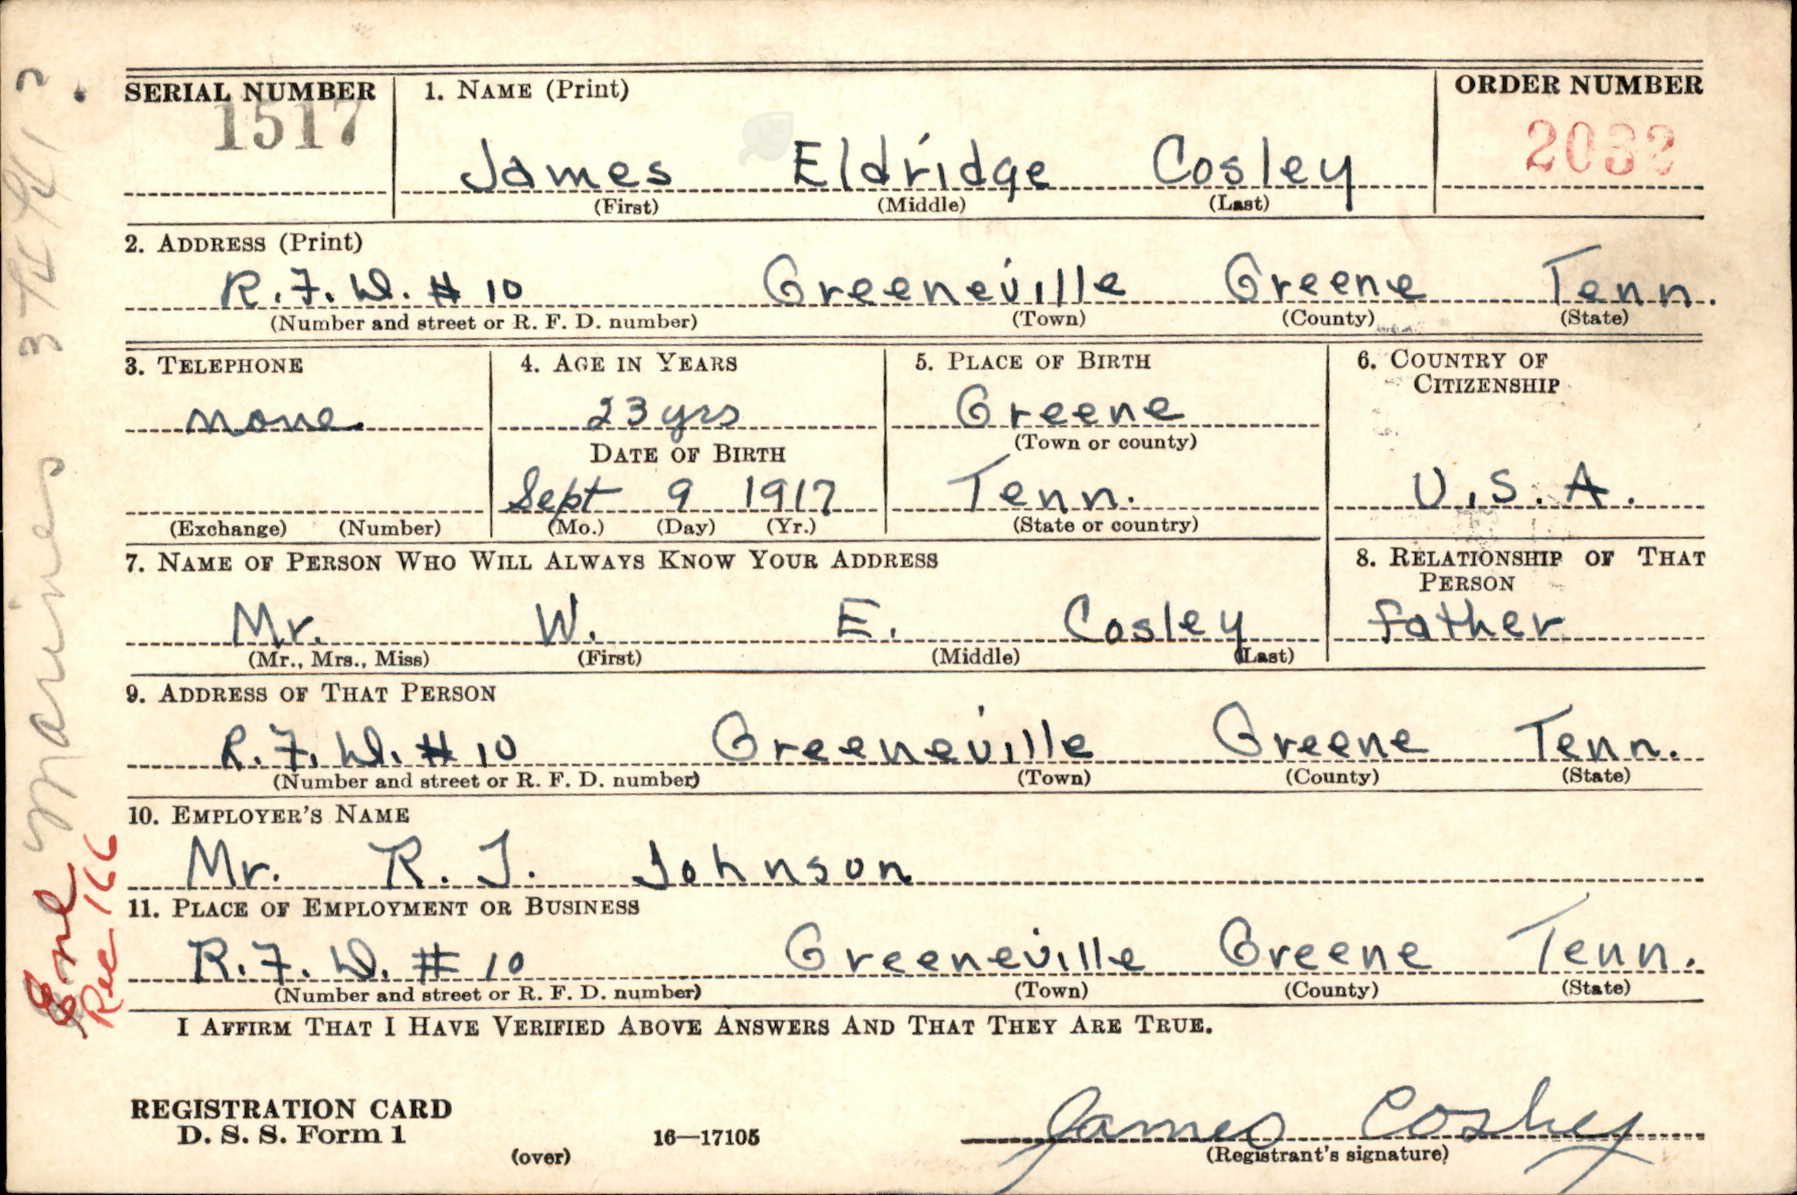 SERIAL NUMBER 1. NAME (Print) ORDER NUMBER
1517 2032
James Eldridge Cosley
(First) (Middle) (Last)
2. ADDRESS (Print)
R.F.D. # 10 Greeneville Greene Tenn.
(Number and street or R. F. D. number) (Town) (County) (State)
3. TELEPHONE 4. AGE IN YEARS 5. PLACE OF BIRTH 6. COUNTRY OF CITIZENSHIP
none 23 yrs Greene
DATE OF BIRTH (Town or county)
Sept 9 1917 Tenn. U.S.A.
(Exchange) (Number) (Mo.) (Day) (Yr.) (State or country)
7. NAME OF PERSON WHO WILL ALWAYS KNOW YOUR ADDRESS 8. RELATIONSHIP OF THAT PERSON
Mr. W. E. Cosley father
(Mr., Mrs., Miss) (First) (Middle) (Last)
9. ADDRESS OF THAT PERSON
R.F.D. # 10 Greeneville Greene Tenn.
(Number and street or R. F. D. number) (Town) (County) (State)
10. EMPLOYER'S NAME
Mr. R. J. Johnson
11. PLACE OF EMPLOYMENT OR BUSINESS
R.F.D. # 10 Greeneville Greene Tenn.
(Number and street or R. F. D. number) (Town) (County) (State)
I AFFIRM THAT I HAVE VERIFIED ABOVE ANSWERS AND THAT THEY ARE TRUE.
REGISTRATION CARD
D. S. S. Form 1 James Cosley
(over) 16—17105 (Registrant's signature)
Marines
Enl
Rec 166